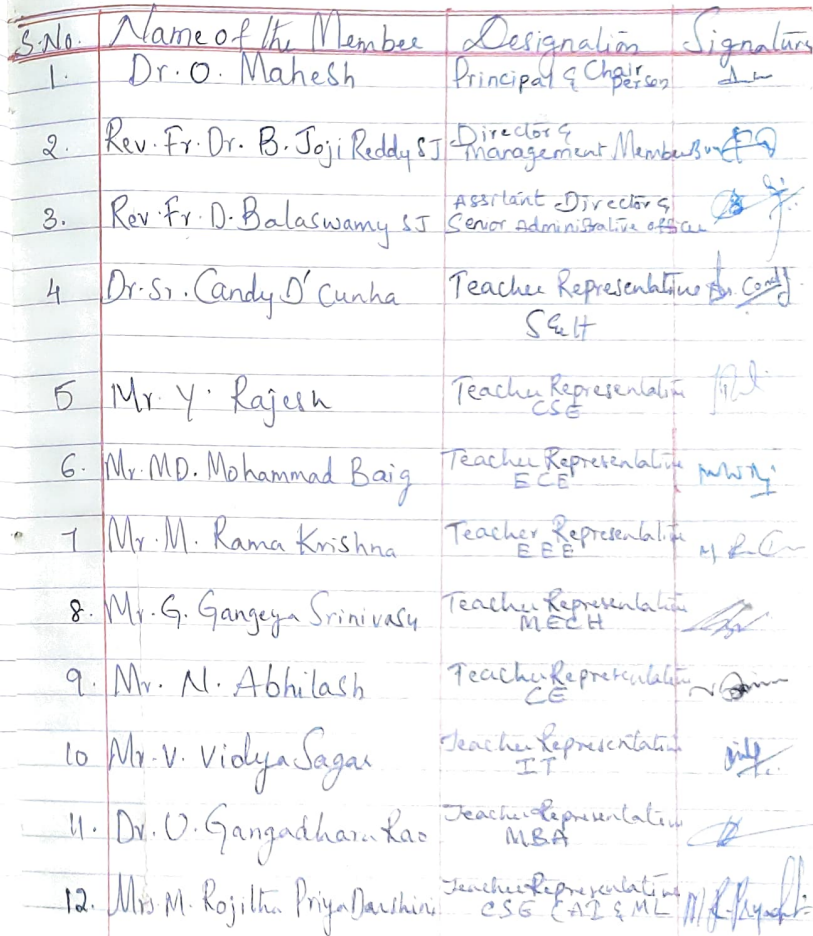 S.No. Name of the Member Designation Signature
1. Dr. O. Mahesh Principal & Chair person
2. Rev. Fr. Dr. B. Joji Reddy SJ Director & Management Member
3. Rev. Fr. D. Balaswamy SJ Assitant Director & Senior Administrative officer
4 Dr. Sr. Candy D'Cunha Teacher Representative
S&H
5 Mr. Y. Rajesh Teacher Representative
CSE
6. Mr. MD. Mohammad Baig Teacher Representative
ECE
7 Mr. M. Rama Krishna Teacher Representative
EEE
8. Mr. G. Gangeya Srinivasu Teacher Representative
MECH
9. Mr. N. Abhilash Teacher Representative
CE
10 Mr. V. Vidya Sagar Teacher Representative
IT
11. Dr. U. Gangadhara Rao Teacher Representative
MBA
12. Mrs. M. Rojitha Priya Darshini Teacher Representative
CSE (AI & ML